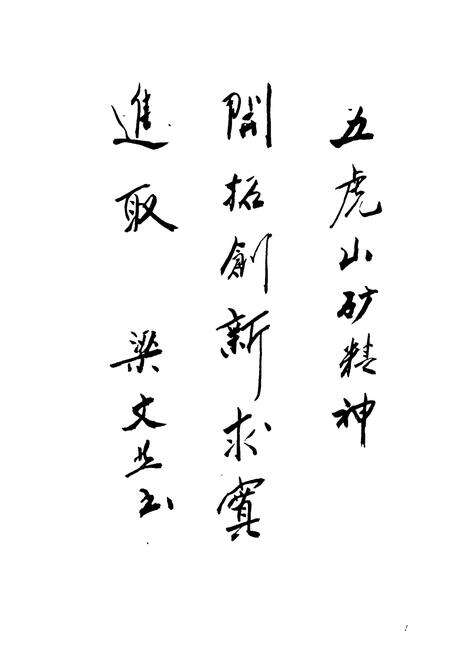 五虎山矿精神
開拓創新求實
進取 梁文业书
1